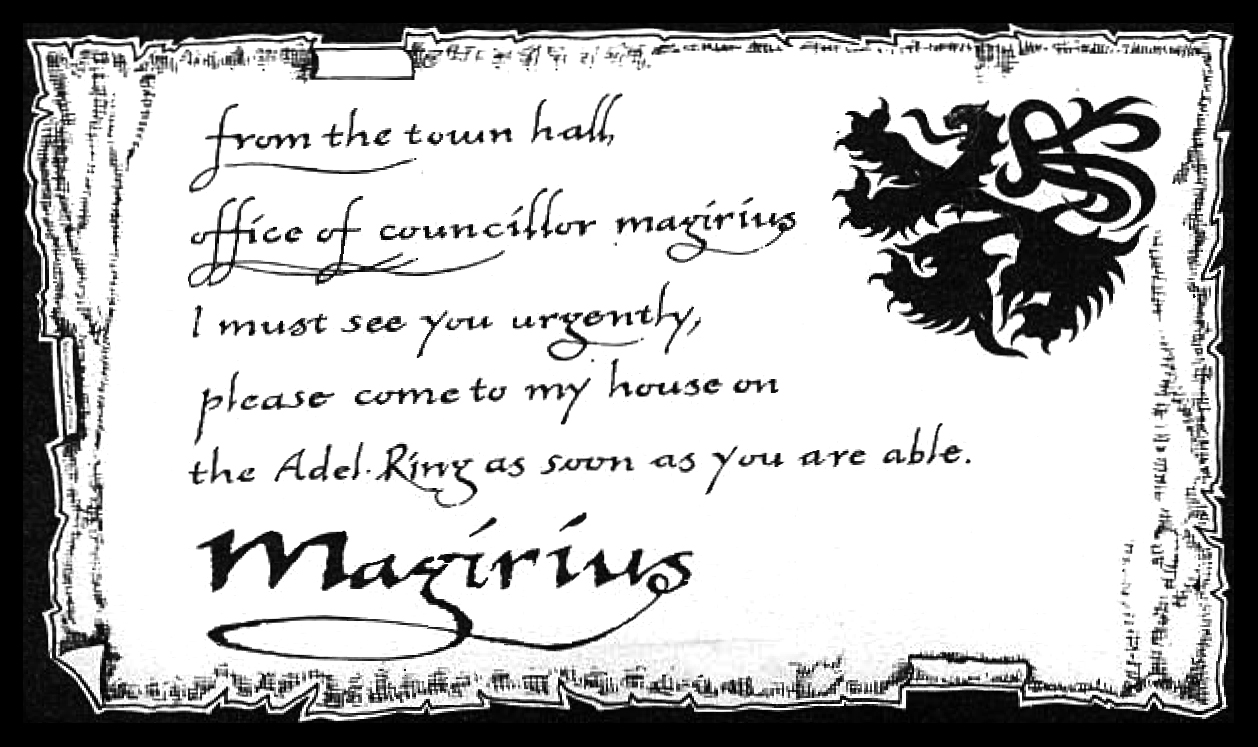 from the town hall,
office of councillor magirius
I must see you urgently,
please come to my house on
the Adel Ring as soon as you are able.
Magirius